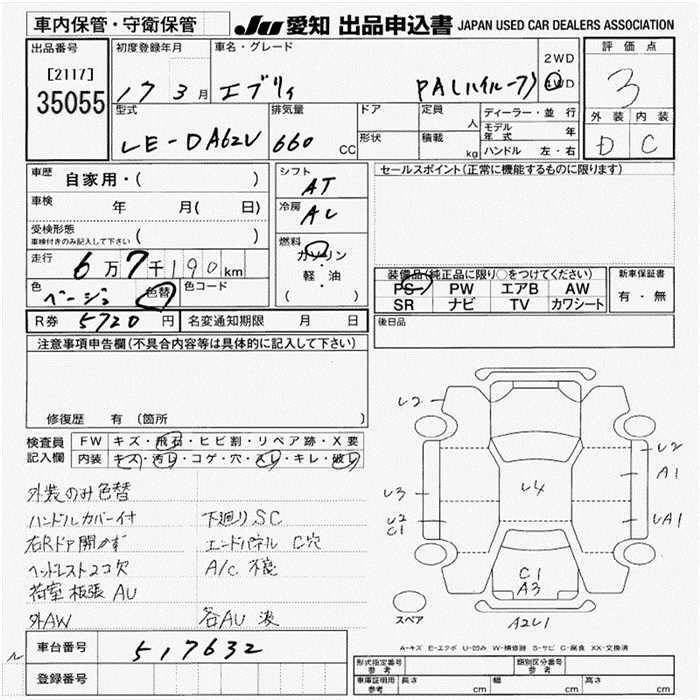 車内保管・守衛保管
JU 愛知 出品申込書 JAPAN USED CAR DEALERS ASSOCIATION
出品番号
[2117]
35055
初度登録年月
17 3月
車名・グレード
エブリィ PA(ハイルーフ)
2WD
4WD
評価点
3
外装 内装
D C
型式
LE-DA62V
排気量
660 cc
ドア
形状
定員 人
積載 kg
ディーラー・並行
モデル年式 年
ハンドル 左・右
車歴 自家用・( )
車検 年 月( 日)
受検形態
車検付きのみ記入して下さい ( )
走行 6万7千190km
色 ベージュ 色替 色コード
R券 5720円 名変通知期限 月 日
シフト
AT
冷房
AC
燃料
ガソリン
・
軽・油
( )
セールスポイント(正常に機能するものに限ります)
装備品(純正品に限り○をつけてください)
PS PW エアB AW
SR ナビ TV カワシート
新車保証書
有・無
後日品
注意事項申告欄(不具合内容等は具体的に記入して下さい)
修復歴 有 (箇所 )
検査員記入欄
FW キズ・飛石・ヒビ割・リペア跡・X要
内装 キズ・汚レ・コゲ・穴・スレ・キレ・破レ
外装のみ色替
ハンドルカバー付 下廻りSC
右Rドア開かず エンドパネル C穴
ヘッドレスト2コ欠 A/C 不能
荷室 板張 AU
外AW 各AU 波
U2
U2
A1
U3
U4
U2
C1
UA1
C1
A3
スペア
A2U1
A-キズ E-エクボ U-凹み W-補修跡 S-サビ C-腐食 XX-交換済
車台番号 517632
登録番号
形式指定番号 参考
類別区分番号 参考
車庫証明用 参考
長さ cm 幅 cm 高さ cm